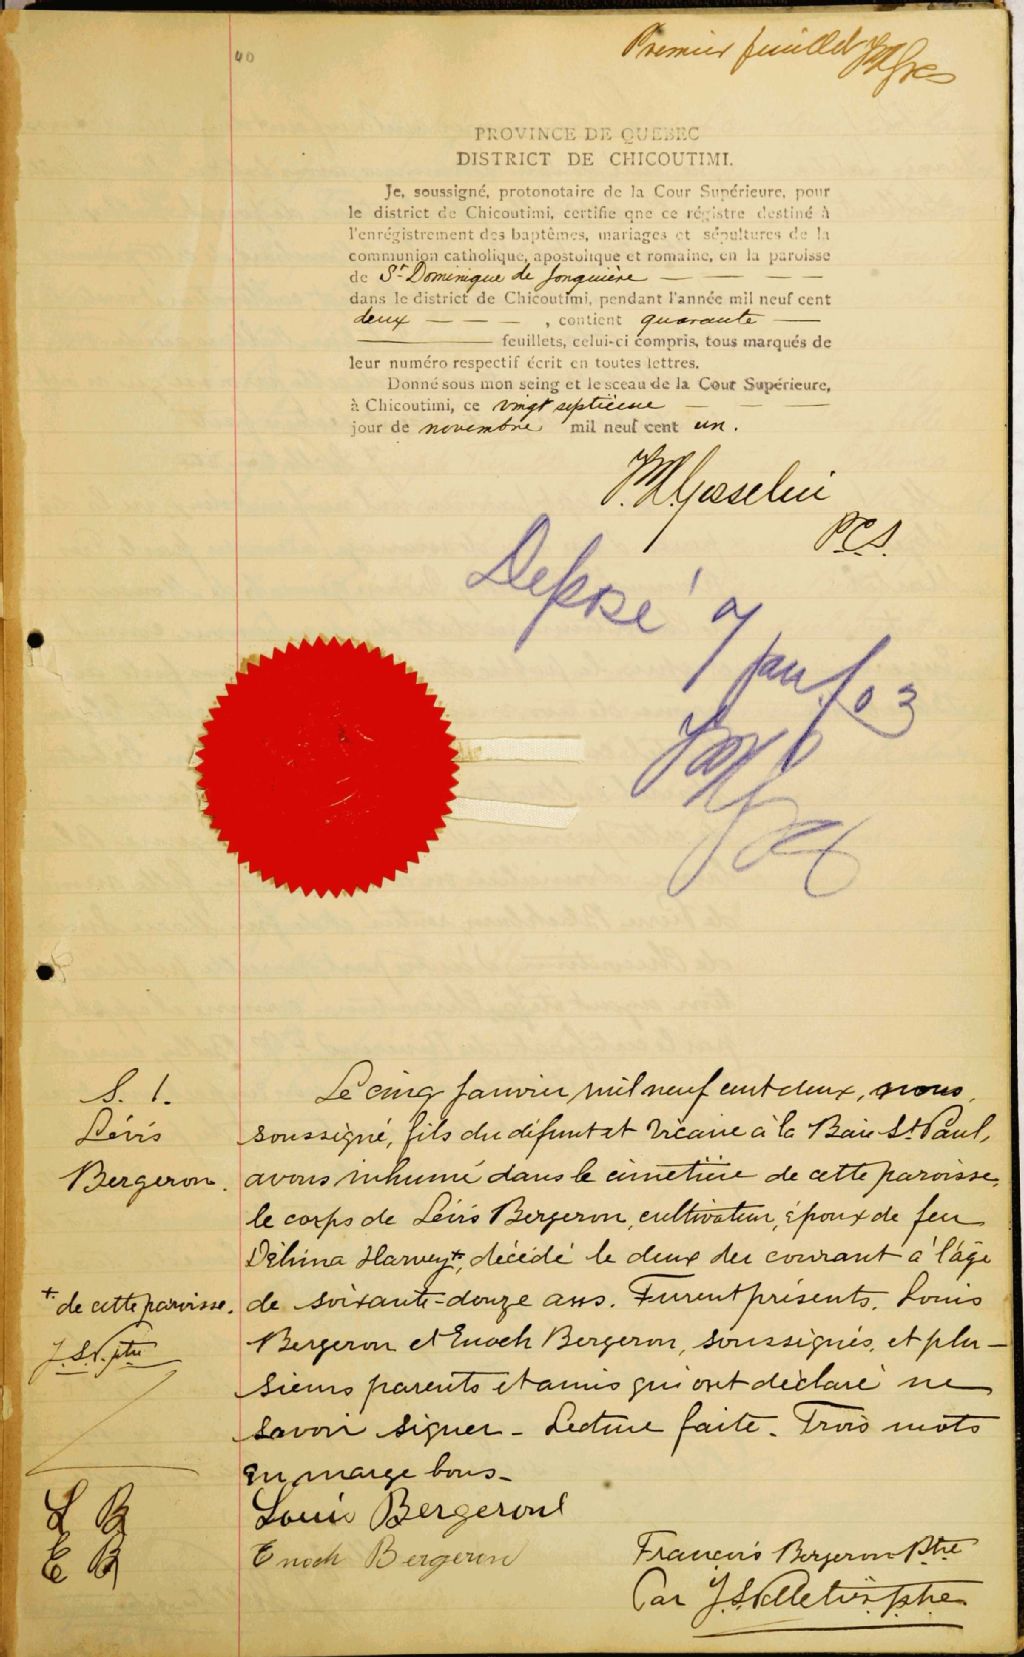 40
Premier feuillet
PROVINCE DE QUEBEC
DISTRICT DE CHICOUTIMI.
Je, soussigné, protonotaire de la Cour Supérieure, pour
le district de Chicoutimi, certifie qne ce régistre destiné à
l'enrégistrement des baptêmes, mariages et sépultures de la
communion catholique, apostolique et romaine, en la paroisse
de St Dominique de Jonquière — — — —
dans le district de Chicoutimi, pendant l'année mil neuf cent
deux — — — , contient quarante —
— feuillets, celui-ci compris, tous marqués de
leur numéro respectif écrit en toutes lettres.
Donné sous mon seing et le sceau de la Cour Supérieure,
à Chicoutimi, ce vingt septième — — —
jour de novembre mil neuf cent un.
Gosselin
P.C.S.
Déposé 9
jan. /03
S. 1.
Lévis
Bergeron.
Le cinq Janvier mil neuf cent deux, nous,
soussigné, fils du défunt et vicaire à la Baie St Paul,
avons inhumé dans le cimetière de cette paroisse,
le corps de Lévis Bergeron, cultivateur, époux de feu
Délima Harvey +, décédé le deux du courant à l'âge
+ de cette paroisse.
de soixante-douze ans. Furent présents. Louis
Bergeron et Enoch Bergeron, soussignés, et plu-
J.S.P. ptre
sieurs parents et amis qui ont déclaré ne
savoir signer - Lecture faite. Trois mots
en marge bons -
L B
Louis Bergeron
E B
Enoch Bergeron
François Bergeron Ptre
Par J. S. Pelletier, ptre